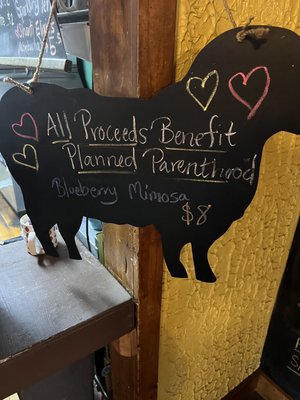 All Proceeds Benefit
Planned Parenthood
Blueberry Mimosa
$8